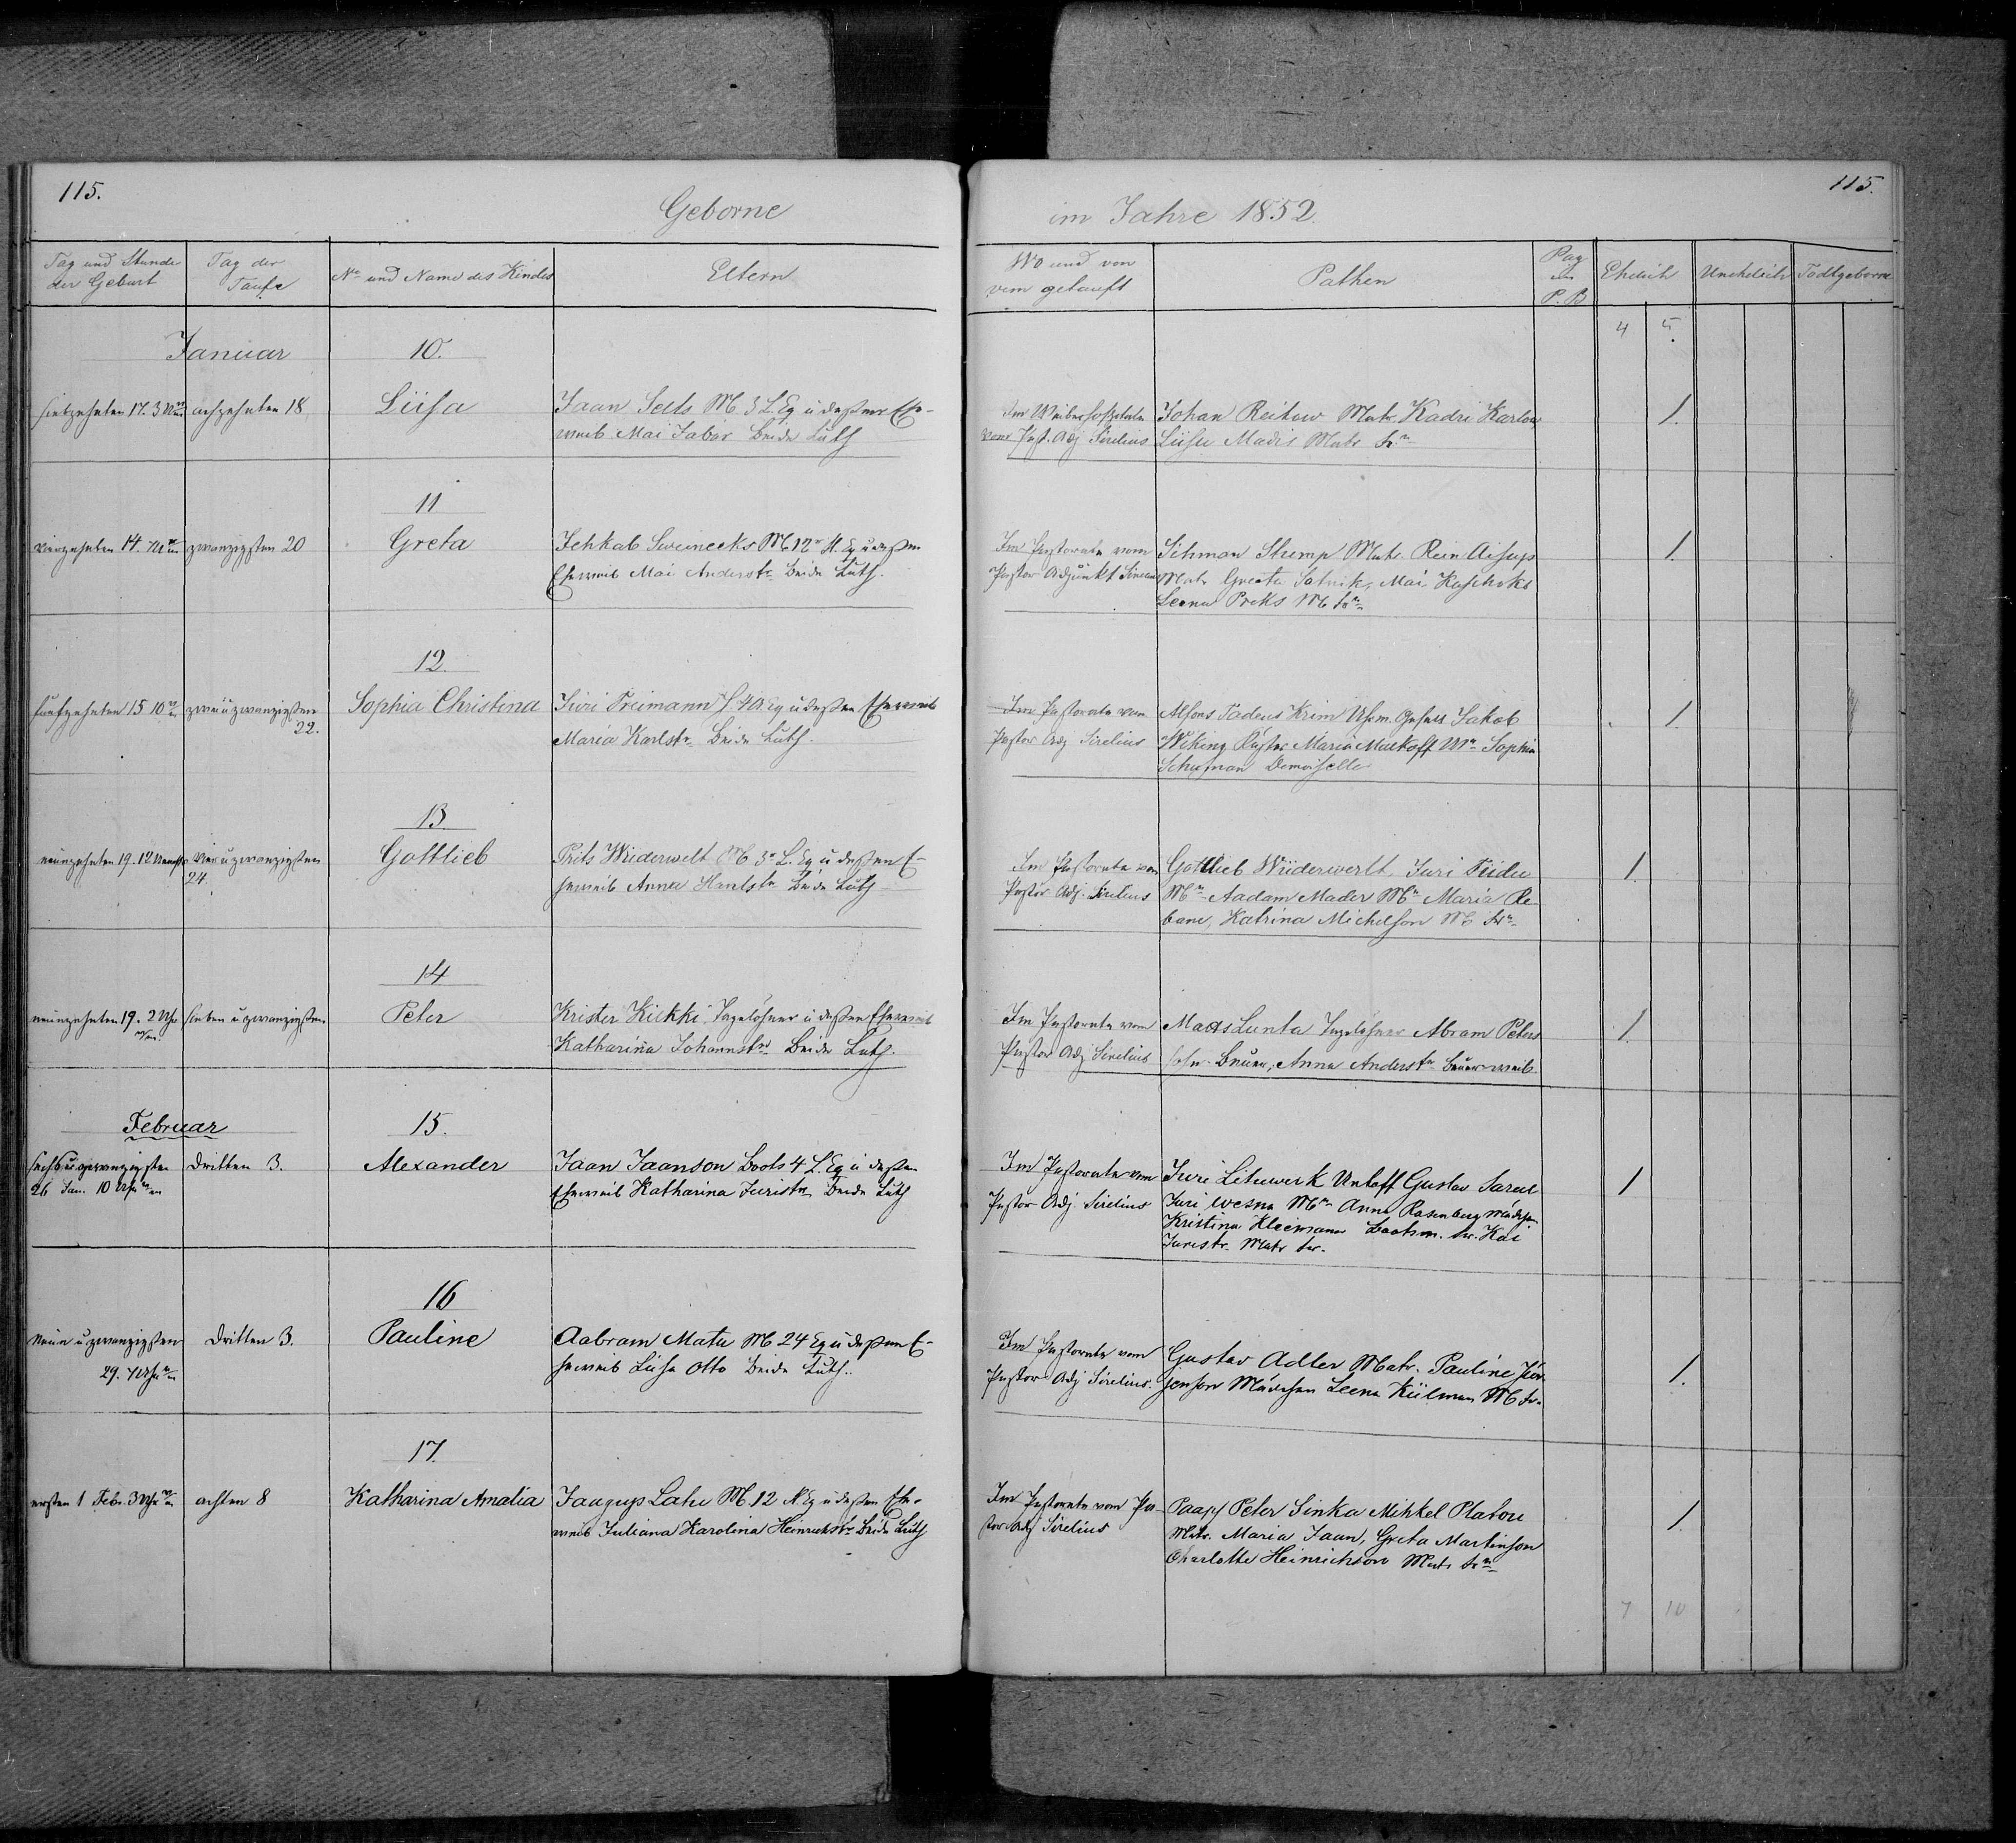 115.
115.
Geborne
im Jahre 1852.
Tag und Stunde
der Geburt
Tag der
Taufe
No und Name des Kindes
Eltern
Wo und von
wem getauft
Pathen
Pag
P. B
Ehelich
Unehelich
Todtgeborne
4 5
Januar
10.
siebzehnten 17. 3
achzehnten 18
Liisa
Jaan Seits M. 3 L. Eq u deßen Ehe-
weib Mai Jabor Beide Luth
Past. Adj Sirelius
Johan Reikow Matr. Kadri Karlow
Liisu Madis Matr
1.
11
vierzehnten 14.
zwanzigsten 20
Greta
Jehkab M 12 Eq u deßen
Eheweib Mai Anderstr Beide Luth.
Im Pastorate vom
Pastor Adjunkt Sirelius
Sihman Stump Matr. Rein Aisup
Matr Greeta Satnik, Mai
Leena Preks M
1.
12.
funfzehnten 15 10
zweiuzwanzigsten
22.
Sophia Christina
Jüri Freimann 4 Eq u deßen Eheweib
Maria Karlstr Beide Luth.
Im Pastorate vom
Pastor Adj Sirelius
Alfons Tadeus Krim Jakob
Wiking Küster Maria Markoff Sophia
Schuman Demoiselle
1.
13.
neunzehnten 19. 12
vier u zwanzigsten
24.
Gottlieb
Prits Wriderwelt M 3 L. Eq u deßen E-
heweib Anna Beide Luth
Im Pastorate von
Pastor Adj. Sirelius
Gottlieb Jüri Tiidu
Aadam Mader Maria Re
bane, Katrina Michelson M
1.
14
neunzehnten 19. 2 Uhr
sieben u zwanzigsten
Peter
Krister Kukki Tagelöhner u deßen Eheweib
Katharina Johannstr Beide Luth.
Im Pastorate vom
Pastor Adj Sirelius
Mats Lunta Tagelöhner Abram Peters
sohn Bauer, Anna Anderstr Bauerweib.
1.
Februar
15.
sechs u zwanzigsten
26 Jan. 10 Uhr
dritten 3.
Alexander
Jaan Jaanson Boots 4 L. Eq u deßen
Eheweib Katharina Juristr Beide Luth
Im Pastorate vom
Pastor Adj. Sirelius
Jüri Untoff Gustav
Juri Wesna Anna Rosenberg Mädchen
Kristina Bootsm. Kai
Juristr. Matr
1
16
neun u zwanzigsten
29.
dritten 3.
Pauline
Aabram Matu M 24 Eq u deßen E-
heweib Liisa Otto Beide Luth..
Im Pastorate vom
Pastor Adj Sirelius.
Gustav Adler Matr. Pauline Jür
jenson Mädchen Leena Külman M
1.
17.
ersten 1 Febr. 3 Uhr
achten 8
Katharina Amalia
Jaugup Lahe M. 12 Eq u deßen Ehe-
weib Juliana Karolina Heinrichstr Beide Luth
Im Pastorate vom Pa-
stor Adj Sirelius
Paap Peter Sinka Mihkel Platou
Matr. Maria Jaan, Greta Martinson
Charlotte Heinrichson Matr
1.
7 10